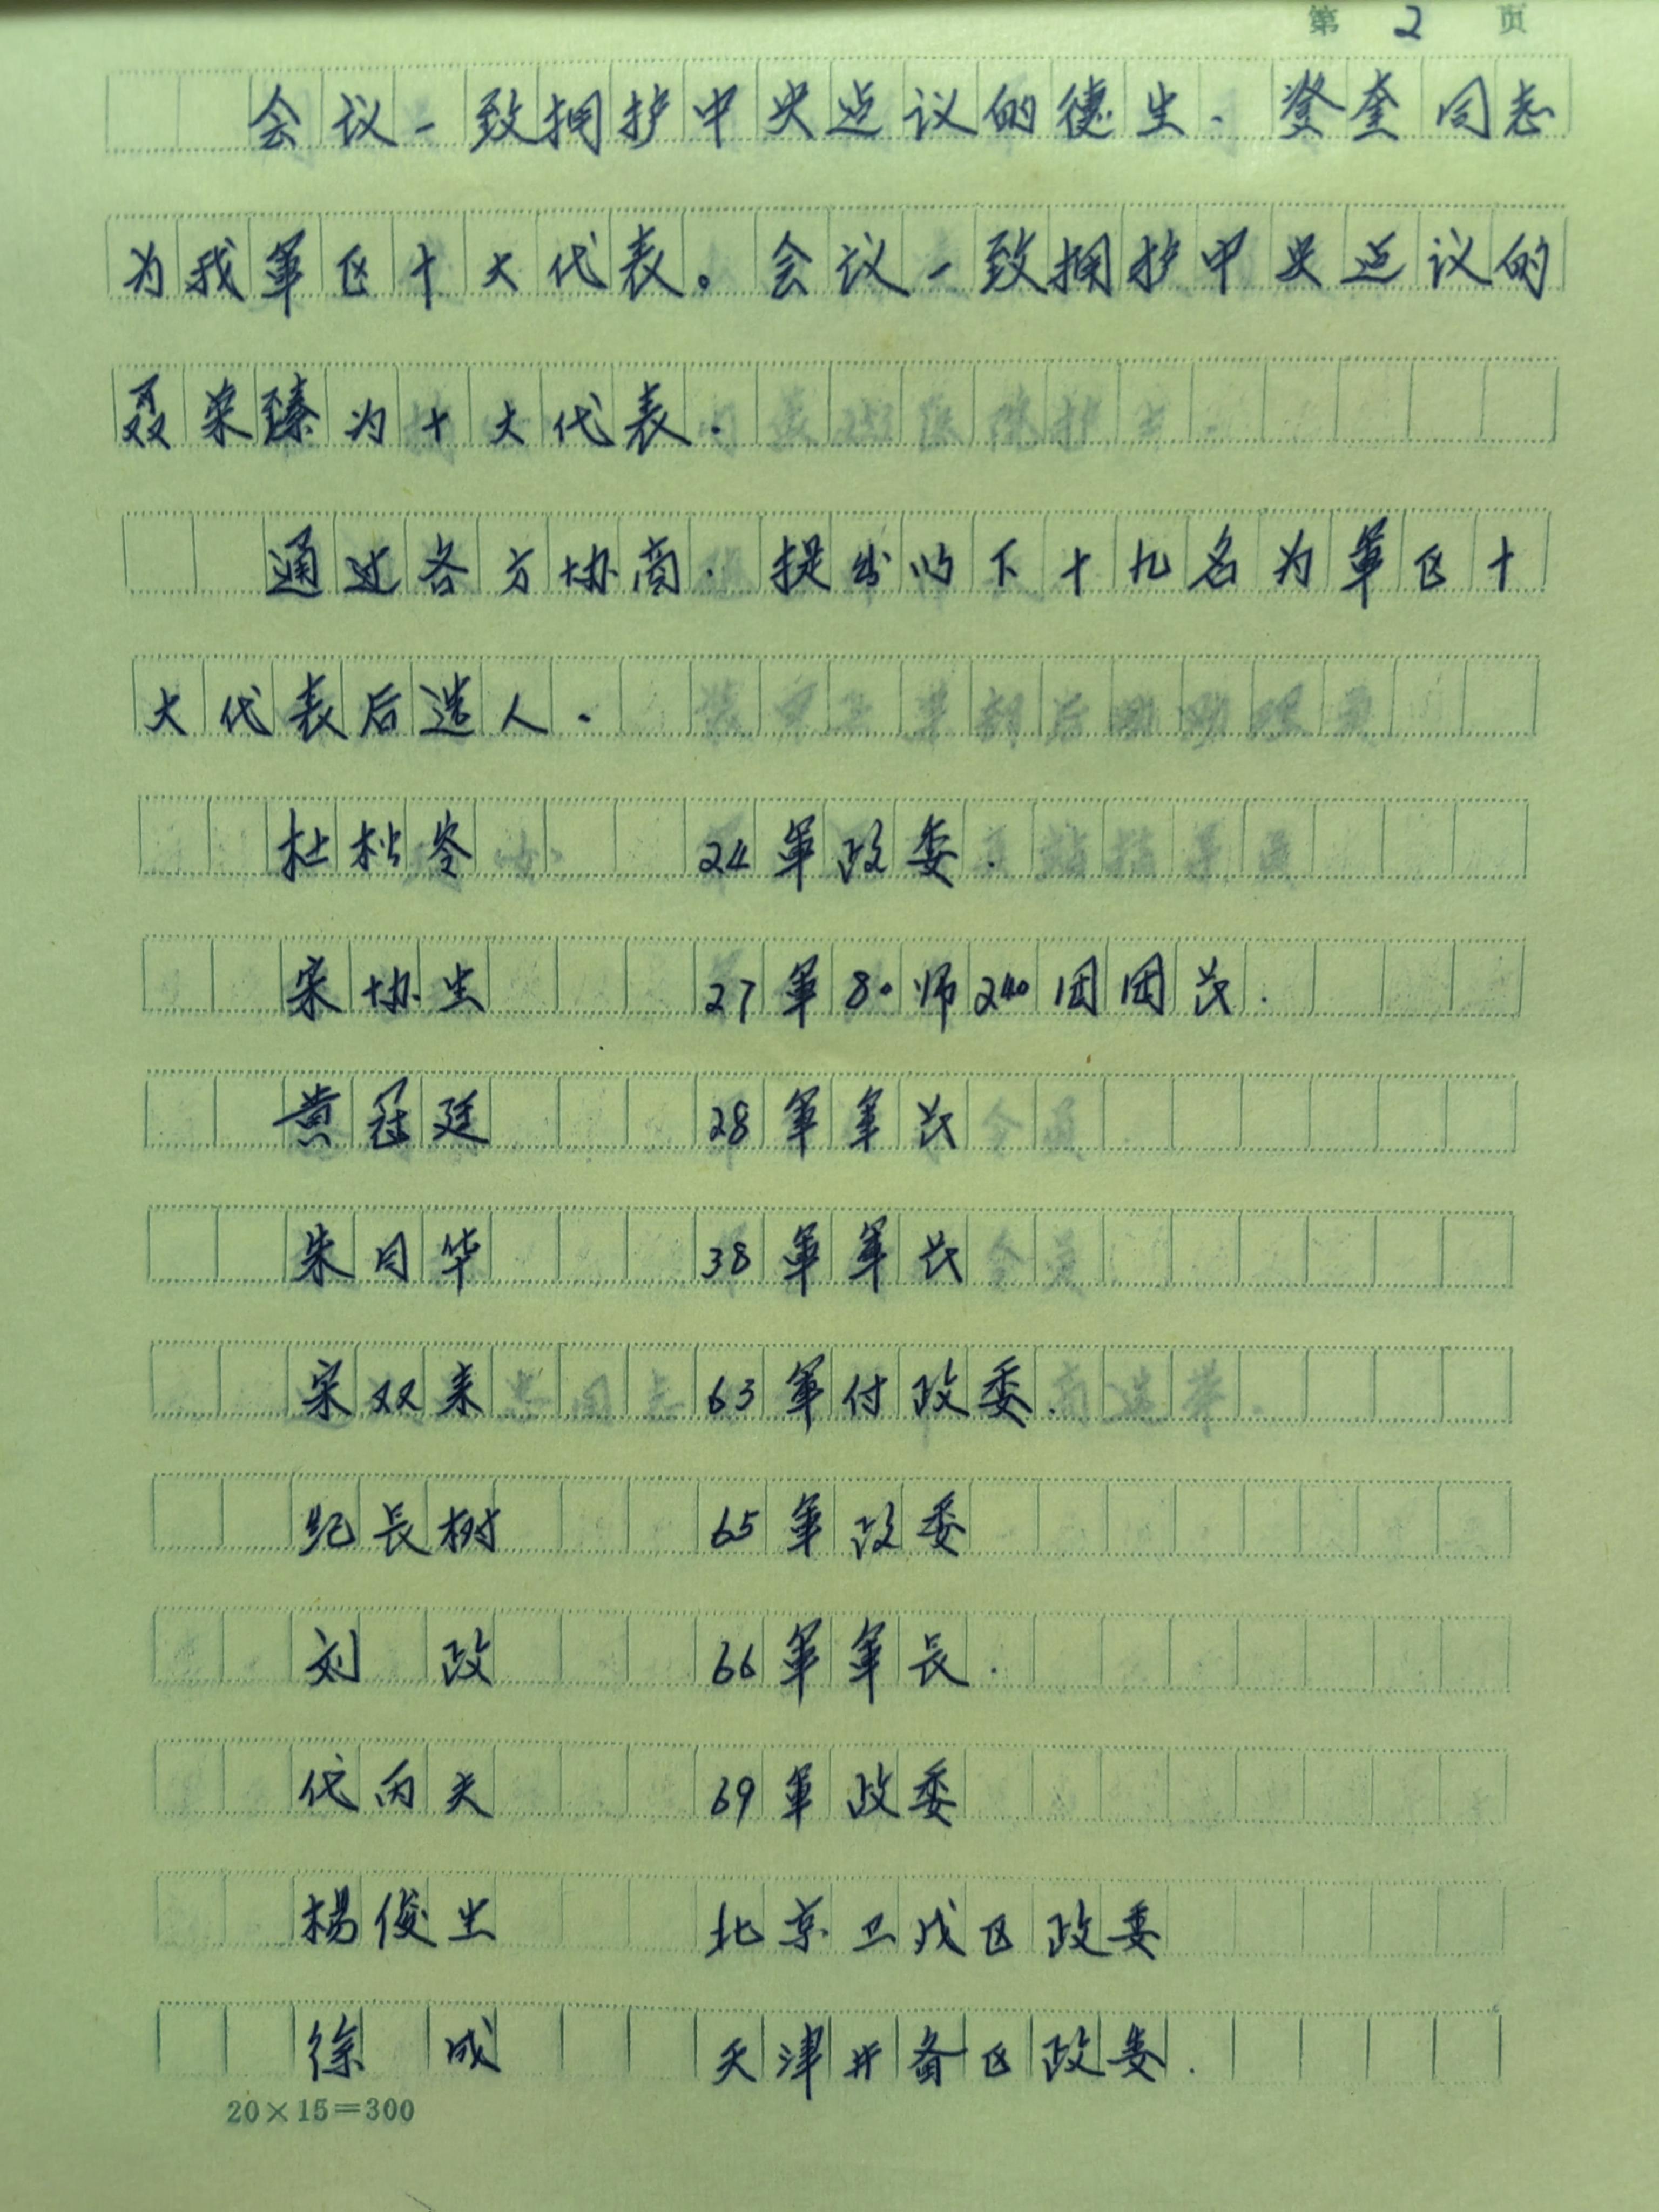 第 2 页
会议一致拥护中央迠议的德生、登奎同志
为我军区十大代表。会议一致拥护中央迠议的
聂荣臻为十大代表.
通过各方协商. 提出以下十九名为軍区十
大代表后选人.
杜 岺 24軍政委.
宋协生 27軍80师240团团长.
黄冠廷 28軍軍长
朱月华 38軍軍长
宋双来 63軍付政委.
纪长树 65軍政委
刘 政 66軍軍长.
代丙夫 69軍政委
楊俊生 北京卫戍区政委
徐 成 天津井备区政委.
20×15=300